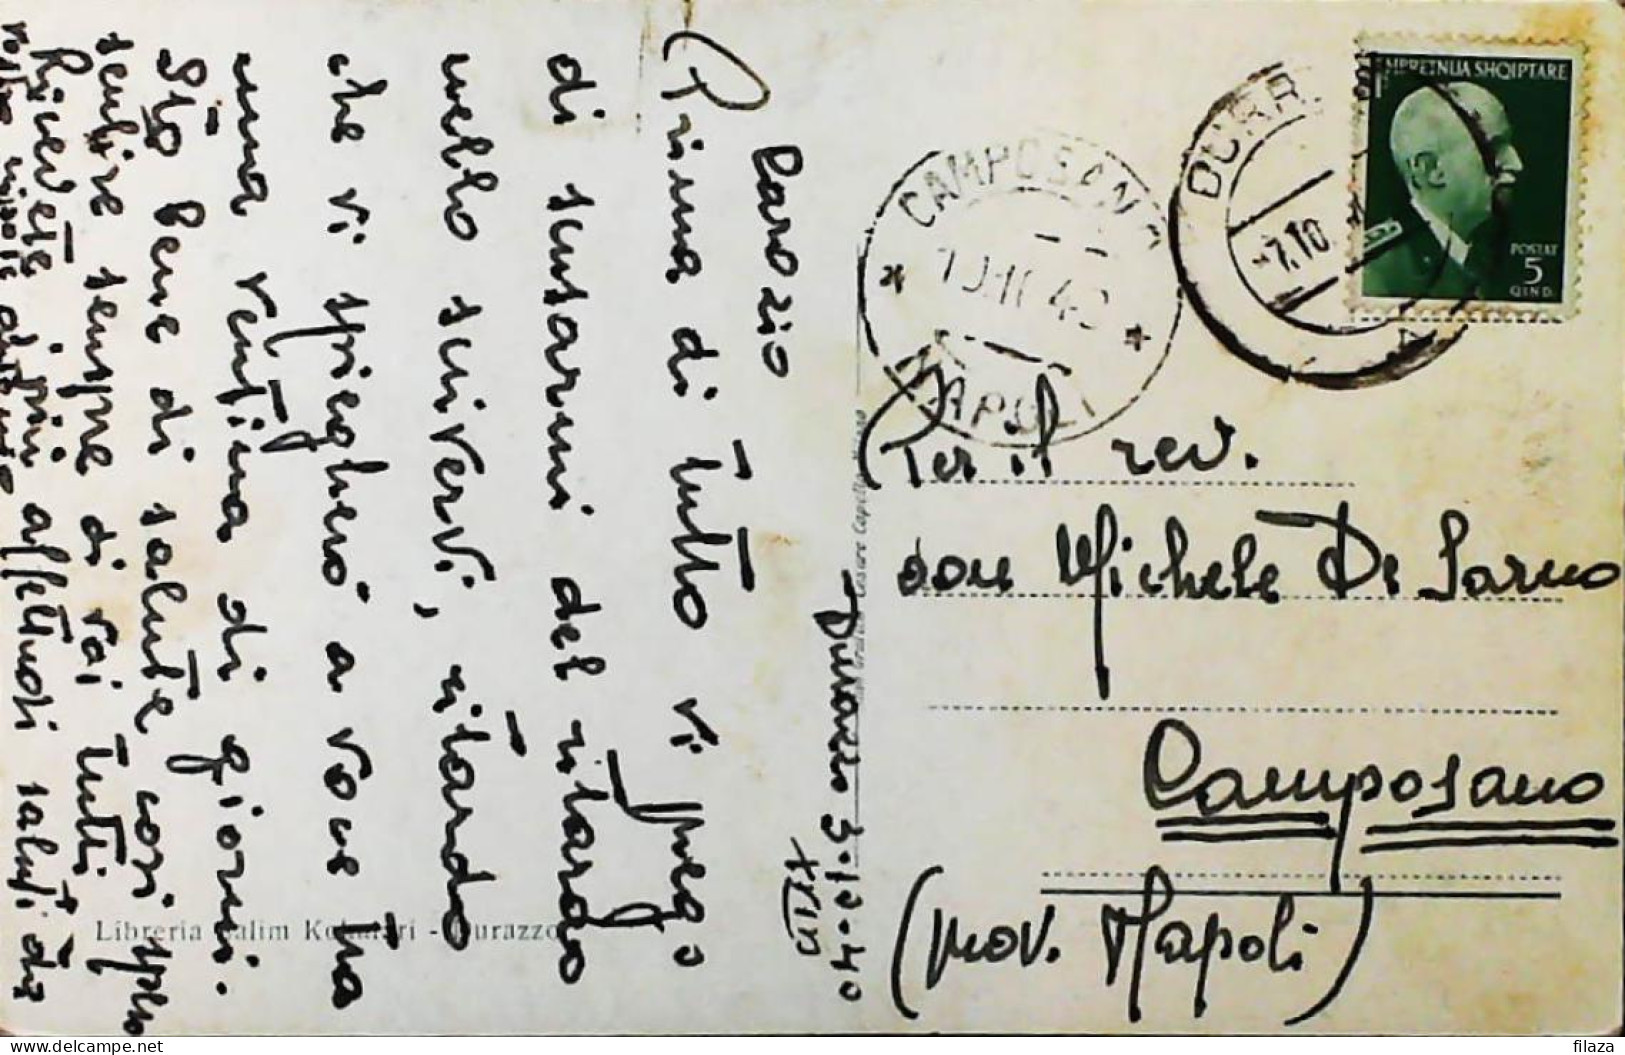 Durazzo 3-10-40
XVIII
Caro zio
Prima di tutto vi prego
di scusarmi del ritardo
nello scrivervi, ritardo
che vi spiegherò a voce tra
una ventina di giorni.
Sto bene di salute così spero
sentire sempre di voi tutti
Ricevete i più affettuosi saluti dal
vostro nipote
Per il rev.
don Michele De Sarno
Camposano
(prov. Napoli)
CAMPOSANO
NAPOLI
DURR
-7.10
MBRETNIJA SHQIPTARE
POSTAT
5
QIND.
Libreria Salim - Durazzo
Cesare Capello Milano
filaza